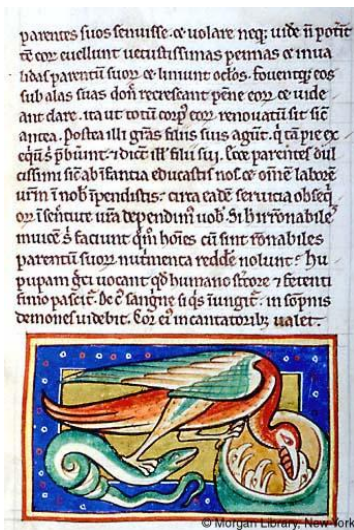 parentes suos senuisse. ce volare neq; vidē n̄ potīt
tē eor̄ euellunt uetustissimas pennas ce inua
lidas parentū suor̄ ce liniunt oclos. fouentq; eos
sub alas suas don̄ recrescant pēne eor̄ ce vide
ant dare. ita ut totū corpꝰ eor̄ renouatū sit sic̄
antea. Postea illi gr̄as filiis suis agūt. q̄ tā pie ex
dicē illꝭ filii sui. Ecce parentes dul
cissimi sic̄ ab īfantia educastis nos. ce om̄ē laborē
urm̄ ī nob̄ īpendistis. circa eadē seruicia obseq̄
or̄ ī senectute ur̄a dependim̄ uob̄. Si h̄ irrōnabile
inuicē s̄ faciunt q̄m hoīes cū sint rōnabiles
parentū suor̄ nutrimenta redde nolunt? Hu
pupam gc̄i uocant. qd̄ humano st̄core ⁊ fetenti
fimo pascit̄. De cꝰ sang̃ne si q̄s īungit̄. in sop̄nis
demones uidebit. Cor eiꝰ incantatorib; ualet.
© Morgan Library, New York